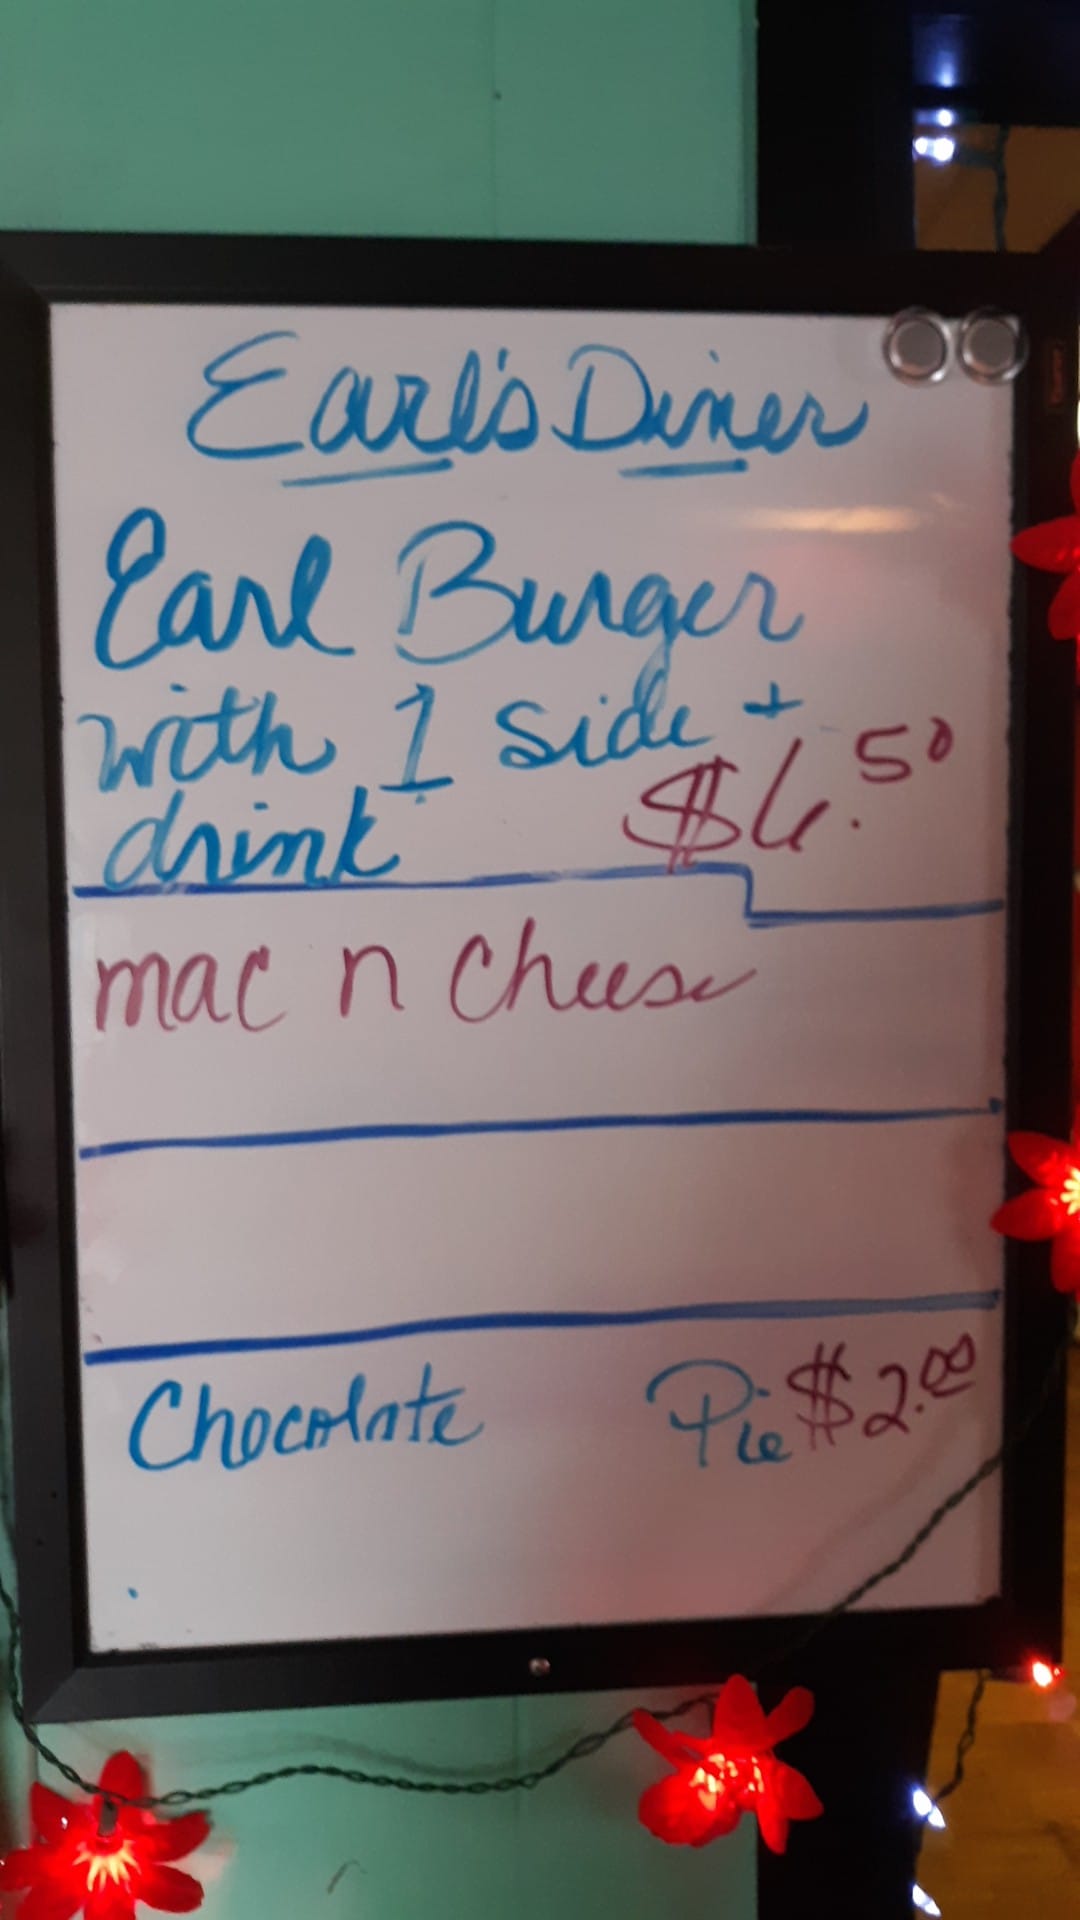 Earl's Diner
Earl Burger
with 1 side +
drink $6.50
mac n cheese
Chocolate Pie $2.00